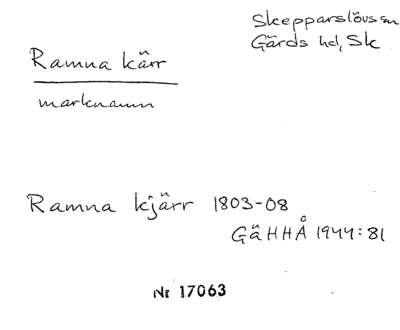 Skepparslövs sn
Gärds hd, Sk
Ramna kärr
marknamn
Ramna kjärr 1803-08
GäHHÅ 1944:81
Nr 17063